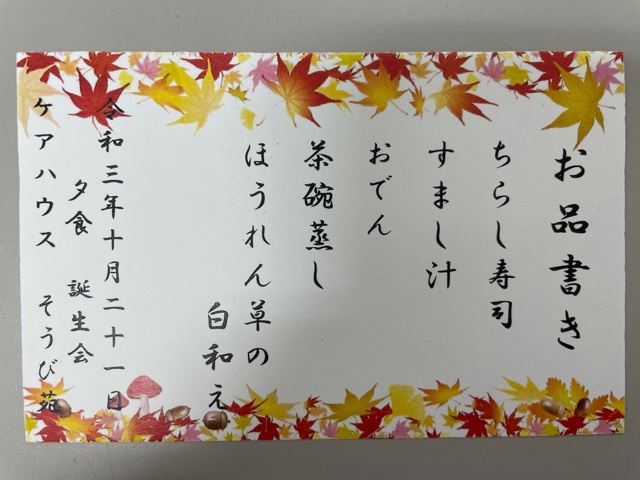 お品書き
ちらし寿司
すまし汁
おでん
茶碗蒸し
ほうれん草の
白和え
令和三年十月二十一日
夕食 誕生会
ケアハウス そうび苑